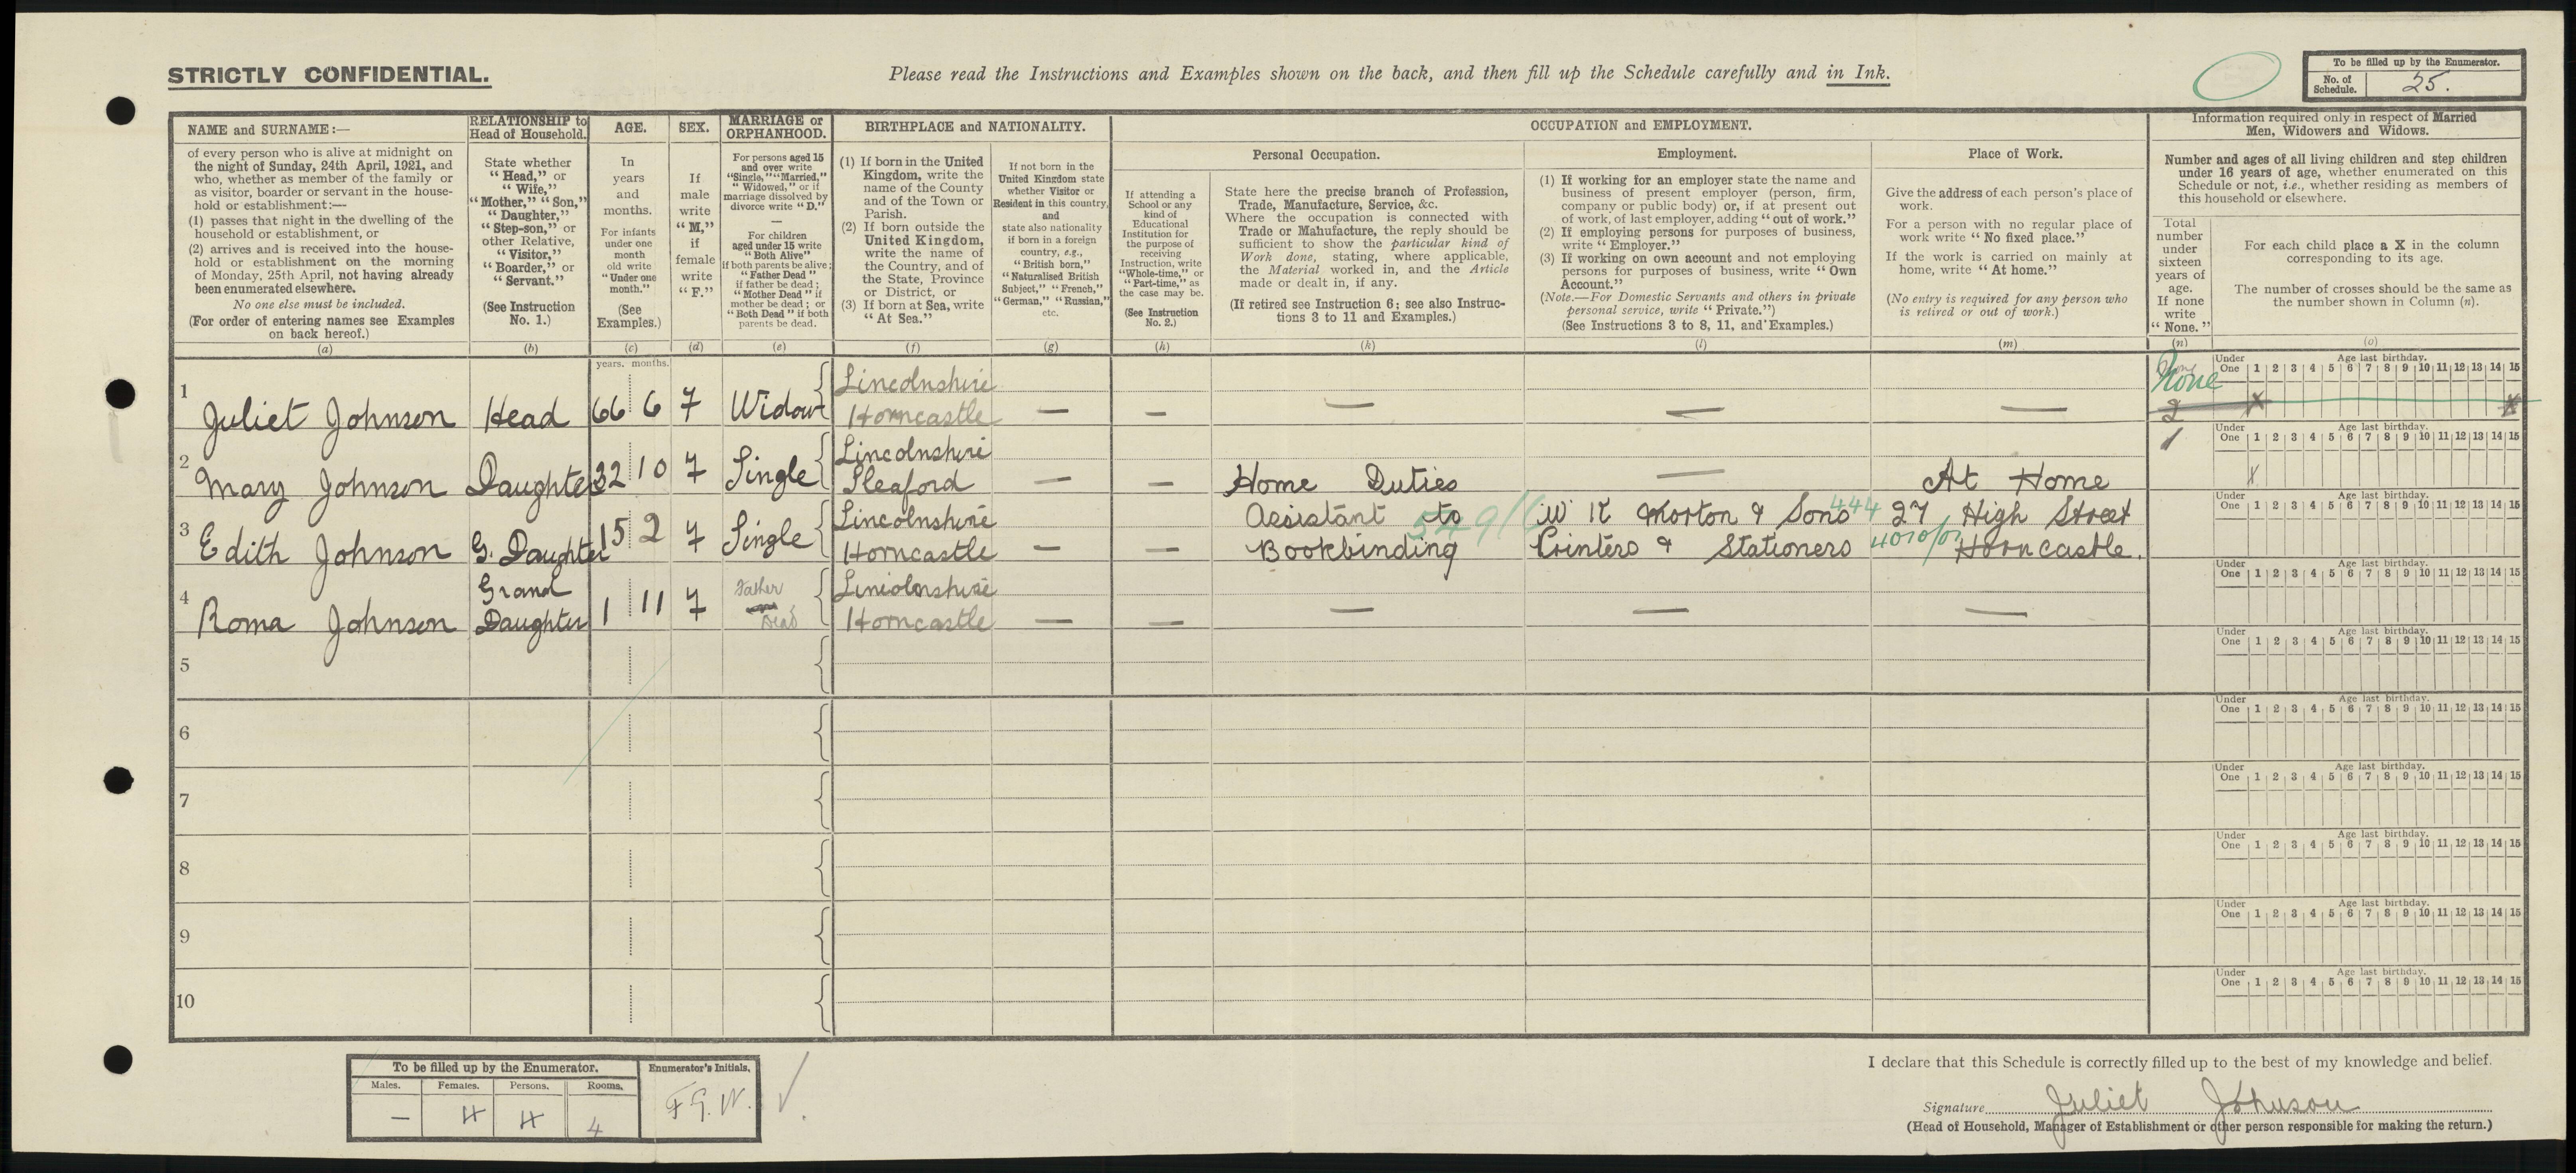 STRICTLY CONFIDENTIAL.
Please read the Instructions and Examples shown on the back, and then fill up the Schedule carefully and in Ink.
To be filled up by the Enumerator.
No. of Schedule. 25.
NAME and SURNAME:—
of every person who is alive at midnight on
the night of Sunday, 24th April, 1921, and
who, whether as member of the family or
as visitor, boarder or servant in the house-
hold or establishment:—
(1) passes that night in the dwelling of the
household or establishment, or
(2) arrives and is received into the house-
hold or establishment on the morning
of Monday, 25th April, not having already
been enumerated elsewhere.
No one else must be included.
(For order of entering names see Examples
on back hereof.)
(a)
RELATIONSHIP to
Head of Household.
State whether
"Head," or
"Wife,"
"Mother," "Son,"
"Daughter,"
"Step-son," or
other Relative,
"Visitor,"
"Boarder," or
"Servant."
(See Instruction
No. 1.)
(b)
AGE.
In
years
and
months.
For infants
under one
month
old write
"Under one
month."
(See
Examples.)
(c)
SEX.
If
male
write
"M,"
if
female
write
"F."
(d)
MARRIAGE or
ORPHANHOOD.
For persons aged 15
and over write
"Single," "Married,"
"Widowed," or if
marriage dissolved by
divorce write "D."
—
For children
aged under 15 write
"Both Alive"
if both parents be alive;
"Father Dead"
if father be dead;
"Mother Dead" if
mother be dead; or
"Both Dead" if both
parents be dead.
(e)
BIRTHPLACE and NATIONALITY.
(1) If born in the United
Kingdom, write the
name of the County
and of the Town or
Parish.
(2) If born outside the
United Kingdom,
write the name of
the Country, and of
the State, Province
or District, or
(3) If born at Sea, write
"At Sea."
(f)
If not born in the
United Kingdom state
whether Visitor or
Resident in this country,
and
state also nationality
if born in a foreign
country, e.g.,
"British born,"
"Naturalised British
Subject," "French,"
"German," "Russian,"
etc.
(g)
OCCUPATION and EMPLOYMENT.
Personal Occupation.
If attending a
School or any
kind of
Educational
Institution for
the purpose of
receiving
Instruction, write
"Whole-time," or
"Part-time," as
the case may be.
(See Instruction
No. 2.)
(h)
State here the precise branch of Profession,
Trade, Manufacture, Service, &c.
Where the occupation is connected with
Trade or Manufacture, the reply should be
sufficient to show the particular kind of
Work done, stating, where applicable,
the Material worked in, and the Article
made or dealt in, if any.
(If retired see Instruction 6; see also Instruc-
tions 3 to 11 and Examples.)
(k)
Employment.
(1) If working for an employer state the name and
business of present employer (person, firm,
company or public body) or, if at present out
of work, of last employer, adding "out of work."
(2) If employing persons for purposes of business,
write "Employer."
(3) If working on own account and not employing
persons for purposes of business, write "Own
Account."
(Note.—For Domestic Servants and others in private
personal service, write "Private.")
(See Instructions 3 to 8, 11, and Examples.)
(l)
Place of Work.
Give the address of each person's place of
work.
For a person with no regular place of
work write "No fixed place."
If the work is carried on mainly at
home, write "At home."
(No entry is required for any person who
is retired or out of work.)
(m)
Information required only in respect of Married
Men, Widowers and Widows.
Number and ages of all living children and step children
under 16 years of age, whether enumerated on this
Schedule or not, i.e., whether residing as members of
this household or elsewhere.
Total
number
under
sixteen
years of
age.
If none
write
"None."
(n)
For each child place a X in the column
corresponding to its age.
The number of crosses should be the same as
the number shown in Column (n).
(o)
years. months.
Under One Age last birthday. 1 2 3 4 5 6 7 8 9 10 11 12 13 14 15
1 Juliet Johnson Head 66 6 F Widow Lincolnshire Horncastle — — — — — None 2 X X
Under One Age last birthday. 1 2 3 4 5 6 7 8 9 10 11 12 13 14 15
2 Mary Johnson Daughter 32 10 F Single Lincolnshire Sleaford — — Home Duties — At Home 1 X
Under One Age last birthday. 1 2 3 4 5 6 7 8 9 10 11 12 13 14 15
3 Edith Johnson G. Daughter 15 2 F Single Lincolnshire Horncastle — — Assistant to Bookbinding 549/ W K Morton & Sons Printers & Stationers 444 27 High Street Horncastle.
Under One Age last birthday. 1 2 3 4 5 6 7 8 9 10 11 12 13 14 15
4 Roma Johnson Grand Daughter 1 11 F Father Dead Lincolnshire Horncastle — — — — —
Under One Age last birthday. 1 2 3 4 5 6 7 8 9 10 11 12 13 14 15
5
Under One Age last birthday. 1 2 3 4 5 6 7 8 9 10 11 12 13 14 15
6
Under One Age last birthday. 1 2 3 4 5 6 7 8 9 10 11 12 13 14 15
7
Under One Age last birthday. 1 2 3 4 5 6 7 8 9 10 11 12 13 14 15
8
Under One Age last birthday. 1 2 3 4 5 6 7 8 9 10 11 12 13 14 15
9
Under One Age last birthday. 1 2 3 4 5 6 7 8 9 10 11 12 13 14 15
10
To be filled up by the Enumerator.
Males. Females. Persons. Rooms.
— 4 4 4
Enumerator's Initials.
F.G.W.
I declare that this Schedule is correctly filled up to the best of my knowledge and belief.
Signature Juliet Johnson
(Head of Household, Manager of Establishment or other person responsible for making the return.)